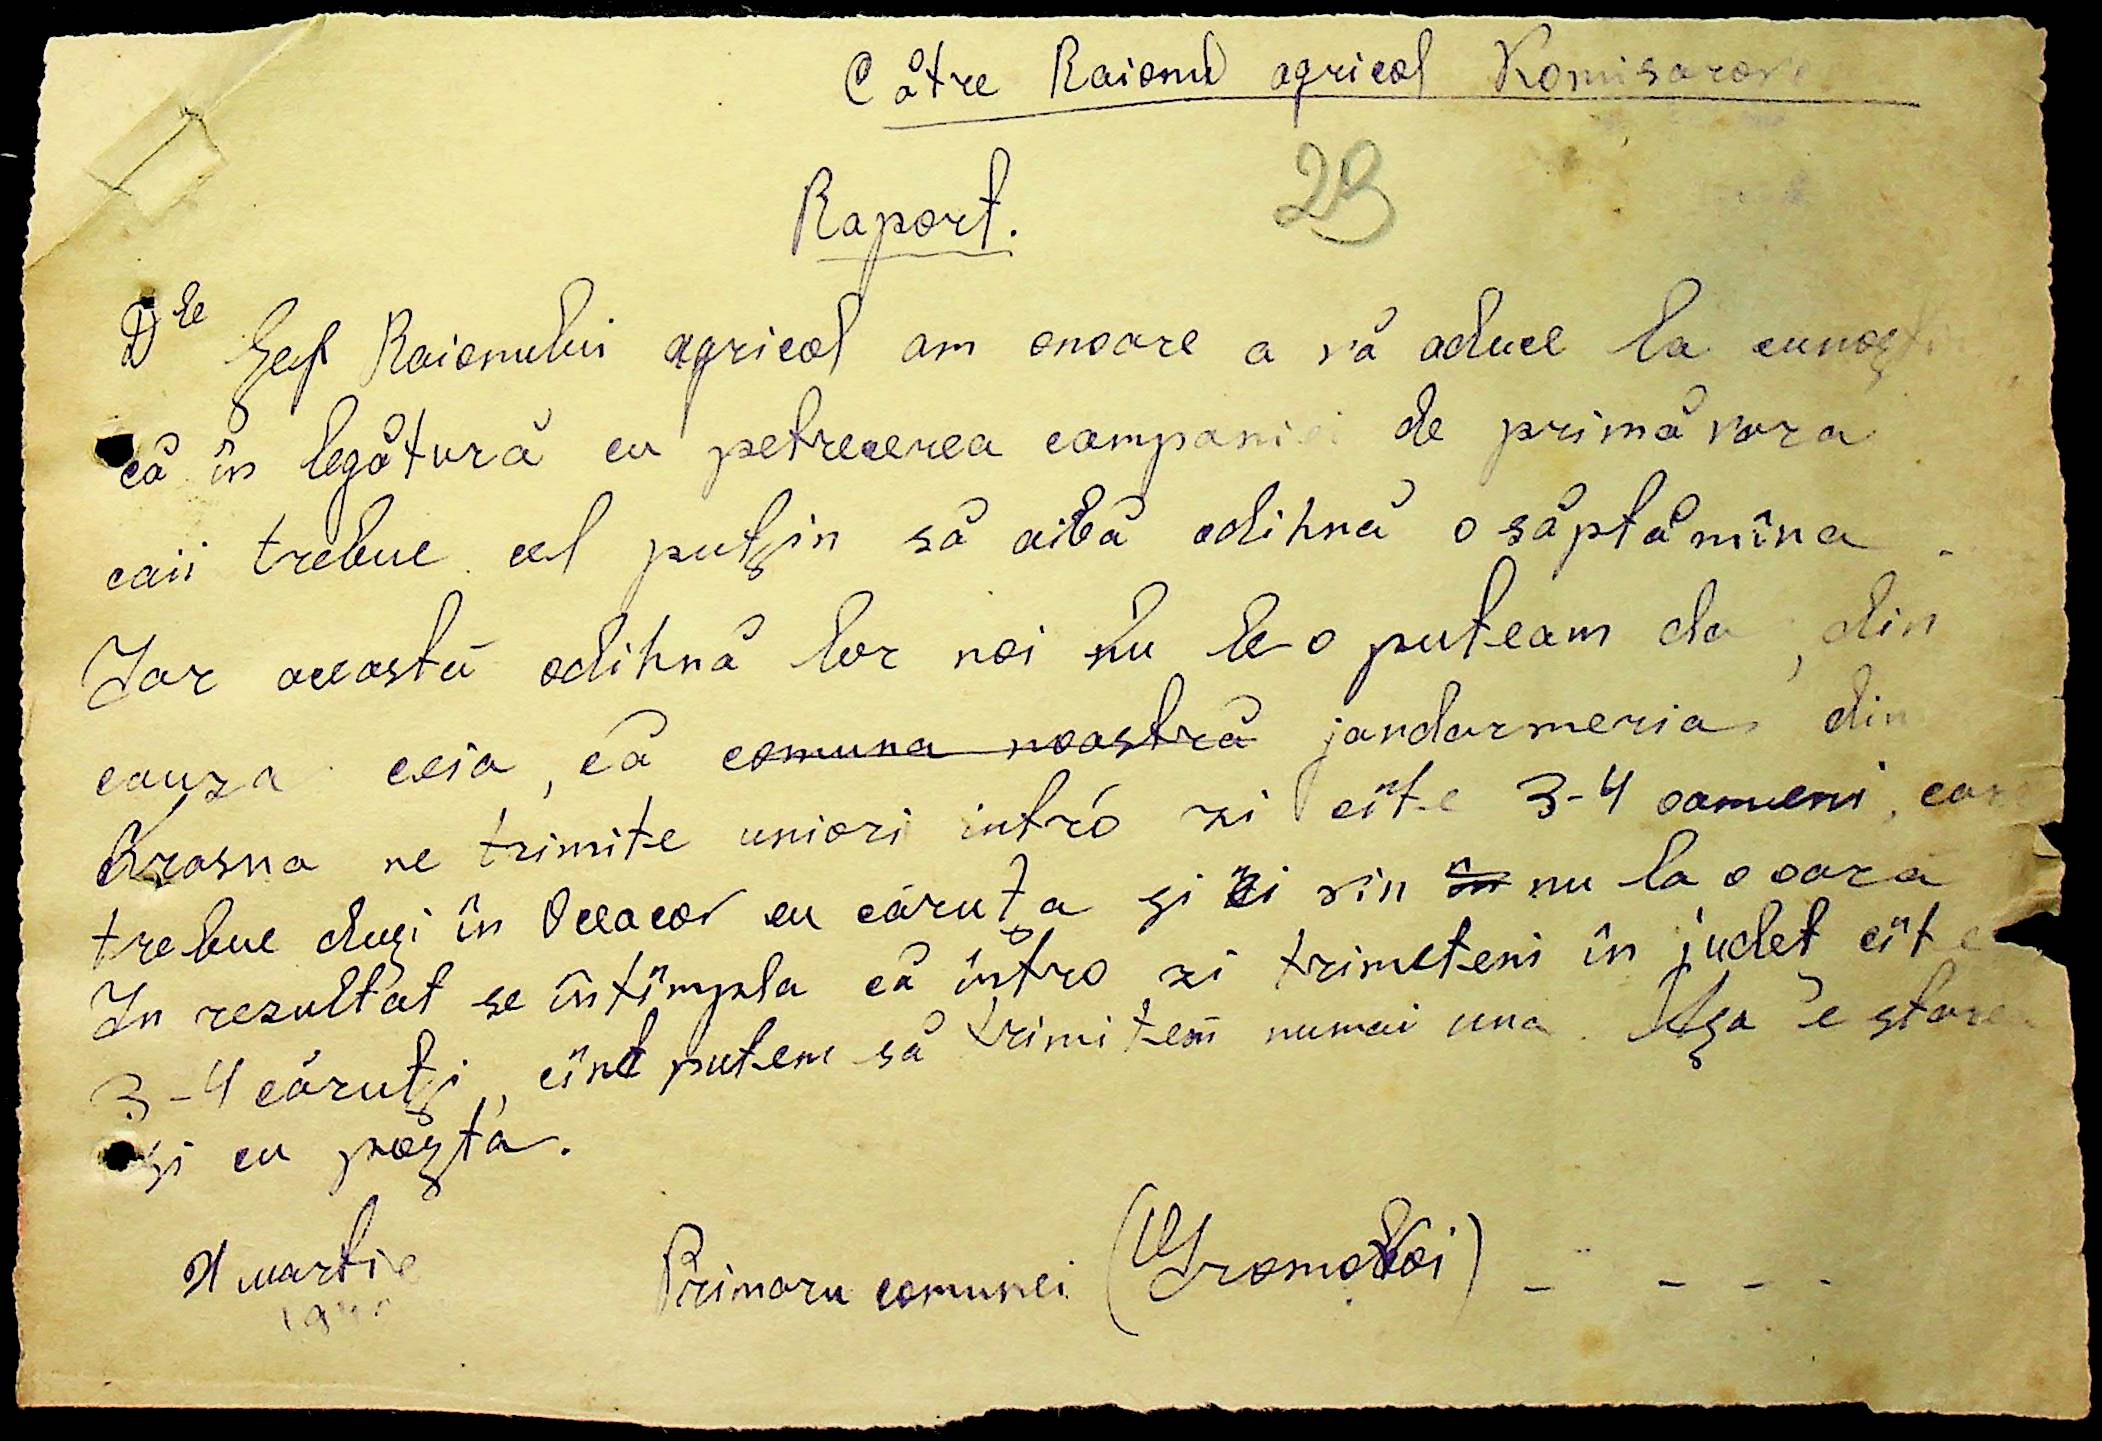 Către Raionul agricol Komisarove
28
Raport.
Dle Șef Raionului agricol am onoare a vă aduce la cunoști
că în legătură cu petrecerea campaniei de primăvara
caii trebue cel puțin să aibă odihnă o săptămîna
Iar această odihnă lor noi nu le o puteam da, din
cauza ceia, că comuna noastră jandarmeria din
Krasna ne trimite uniori intró zi cîte 3-4 oameni, care
trebue duși în Oceacov cu căruța și ei vin în nu la o oară
In rezultat se întîmpla că întro zi trimetem în județ cîte
3-4 căruți, cînd putem să trimitem numai una. Așa e starea
și cu poșta.
4 martie
Primaru comunei (Gromovoi)